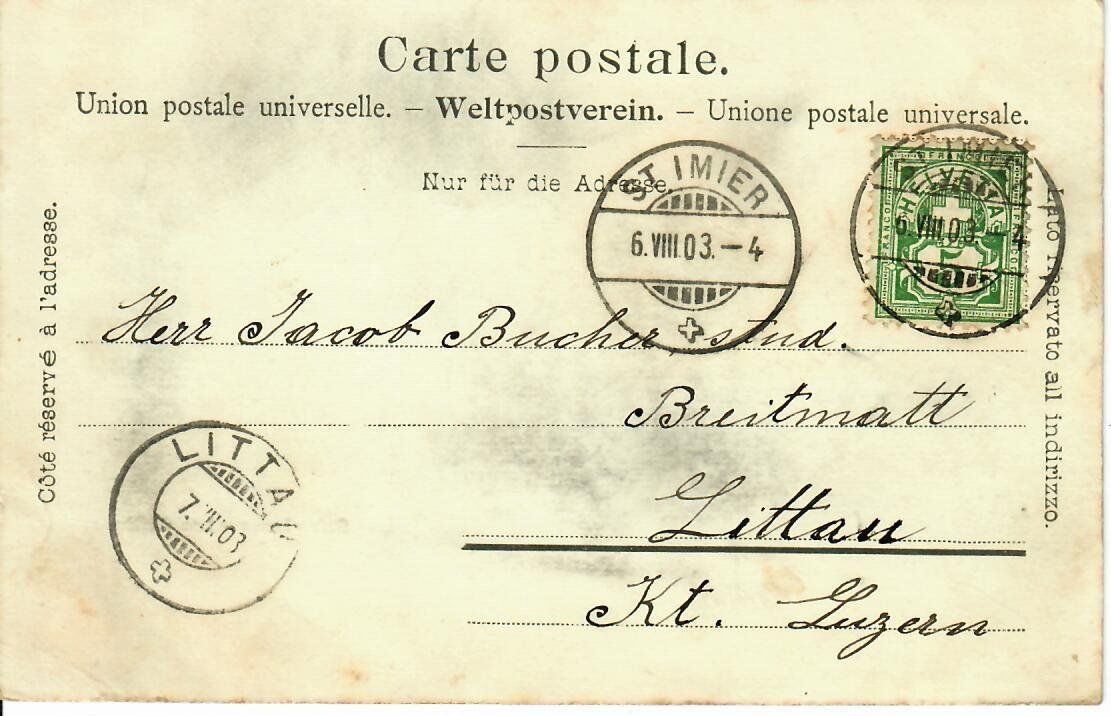 Carte postale.
Union postale universelle. – Weltpostverein. – Unione postale universale.
Nur für die Adresse.
Côté réservé à l'adresse.
Lato riservato all indirizzo.
ST IMIER
6.VIII.03.–4
FRANCO
HELVETIA
6.VIII.03.–4
Herr Jacob Bucher, stud.
Breitmatt
Littau
Kt. Luzern
LITTAU
7.VIII.03